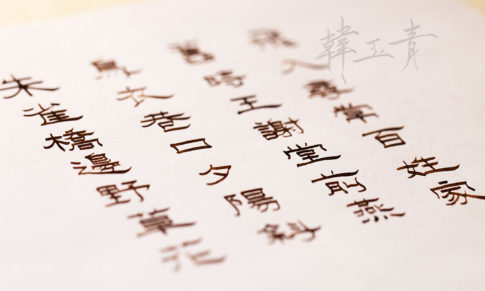 朱雀橋邊野草花
烏衣巷口夕陽斜
舊時王謝堂前燕
飛入尋常百姓家
韓玉青